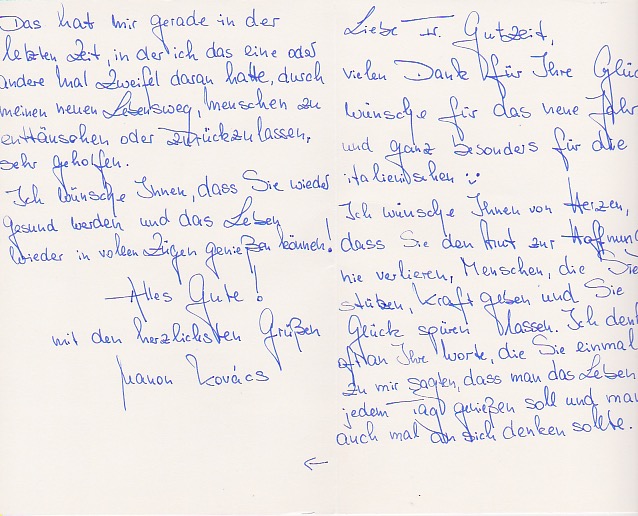 Liebe Fr. Gutzeit,
vielen Dank für Ihre Glück
wünsche für das neue Jahr
und ganz besonders für die
italienischen :-)
Ich wünsche Ihnen von Herzen,
dass Sie den Mut zur Hoffnung
nie verlieren, Menschen, die Sie
stützen, Kraft geben und Sie
Glück spüren lassen. Ich denk
oft an Ihre Worte, die Sie einmal
zu mir sagten, dass man das Leben
jedem Tag genießen soll und man
auch mal an sich denken sollte.
←
Das hat mir gerade in der
letzten Zeit, in der ich das eine oder
andere Mal Zweifel daran hatte, durch
meinen neuen Lebensweg, Menschen zu
enttäuschen oder zurückzulassen,
sehr geholfen.
Ich wünsche Ihnen, dass Sie wieder
gesund werden und das Leben
wieder in vollen Zügen genießen können!
Alles Gute!
mit den herzlichsten Grüßen
Manon Kovács